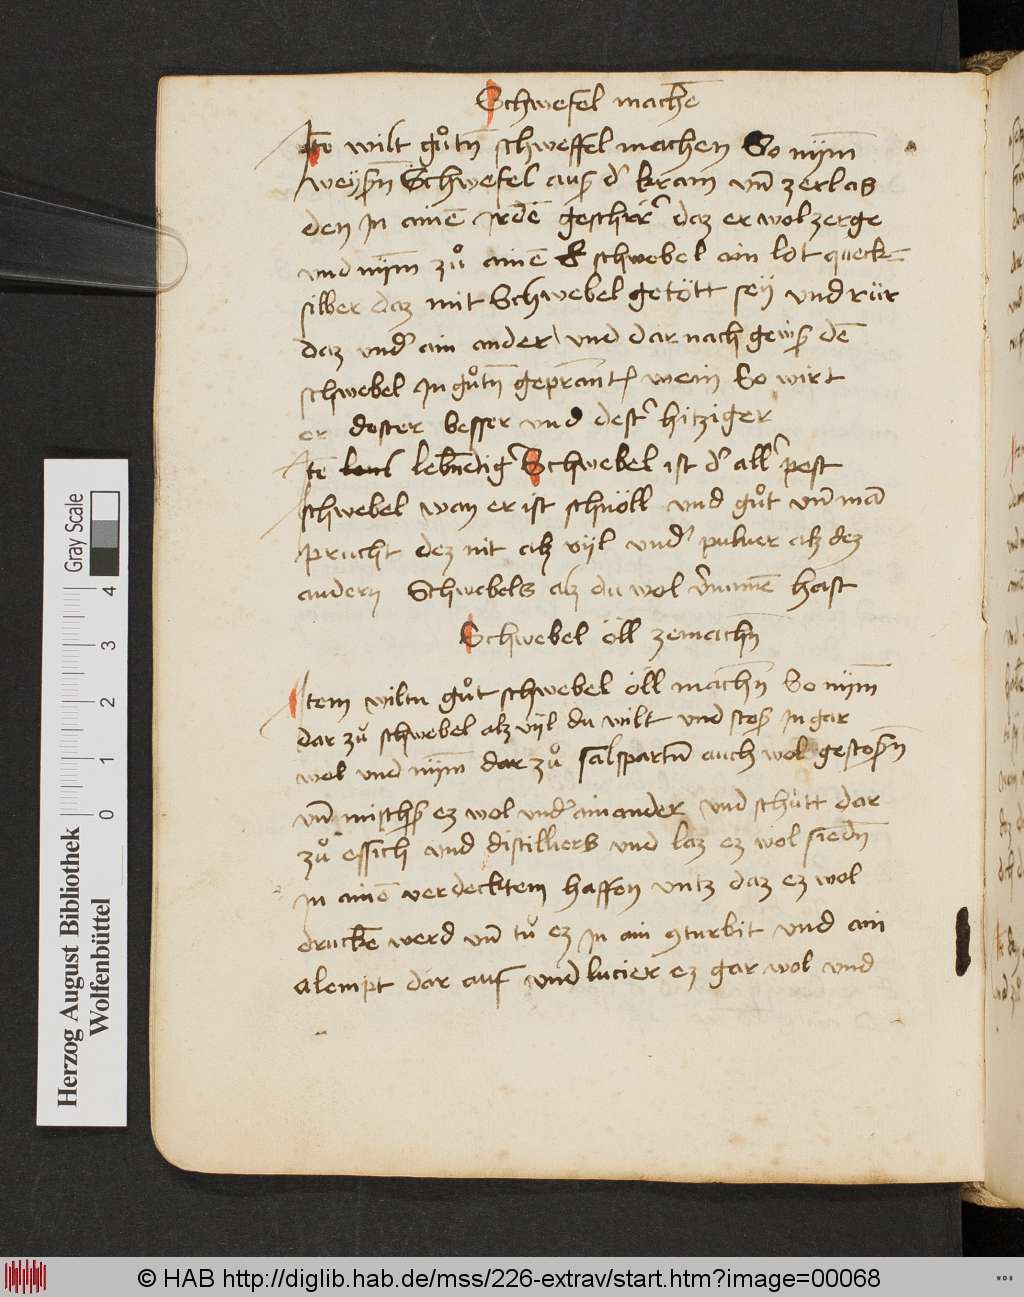 Schwefel machē
Itē wilt gůtn̄ schweffel machen So nӱm̄
weyßn̄ Schwefel auß d' kram vn̄ zerlas
den In ainē irdē geschirr daz er wol zerge
und nӱm̄ zů ainē schwebel ain lot queck-
silber daz mit Schwebel getött seӱ vnd rür
daz vnd' ain ander vnd dar nach gewß dē
schwebel In gůtn̄ geprant wein So wirt
er dester besser vnd dest' hitziger
Itē lebn̄dig' Schwebel ist d' all' pest
schwebel wan er ist schnöll vnd gůt vn̄ mā
prucht dez nit alz vӱl vnd' puluer alz dez
andern Schwebels alz du wol v'nūmē hast
Schwebel öll zemachn̄
Item wiltu gůt schwebel öll machn̄ So nӱm̄
dar zů schwebel alz vӱl du wilt vnd stoß In gar
wol vnd nӱm̄ dar zů salpartn̄ auch wol gestoßn̄
vn̄ mischß ez wol vnd' ainander vnd schütt dar
zů essich vnd distilliers vnd laz ez wol siedn̄
In ainē verdecktem haffen vntz daz ez wol
druckē werd vn̄ tů ez In ain 9turbit vnd ain
alempt dar auf vnd lucier ez gar wol vnd
Herzog August Bibliothek
Wolfenbüttel
Gray Scale
0 1 2 3 4
© HAB http://diglib.hab.de/mss/226-extrav/start.htm?image=00068